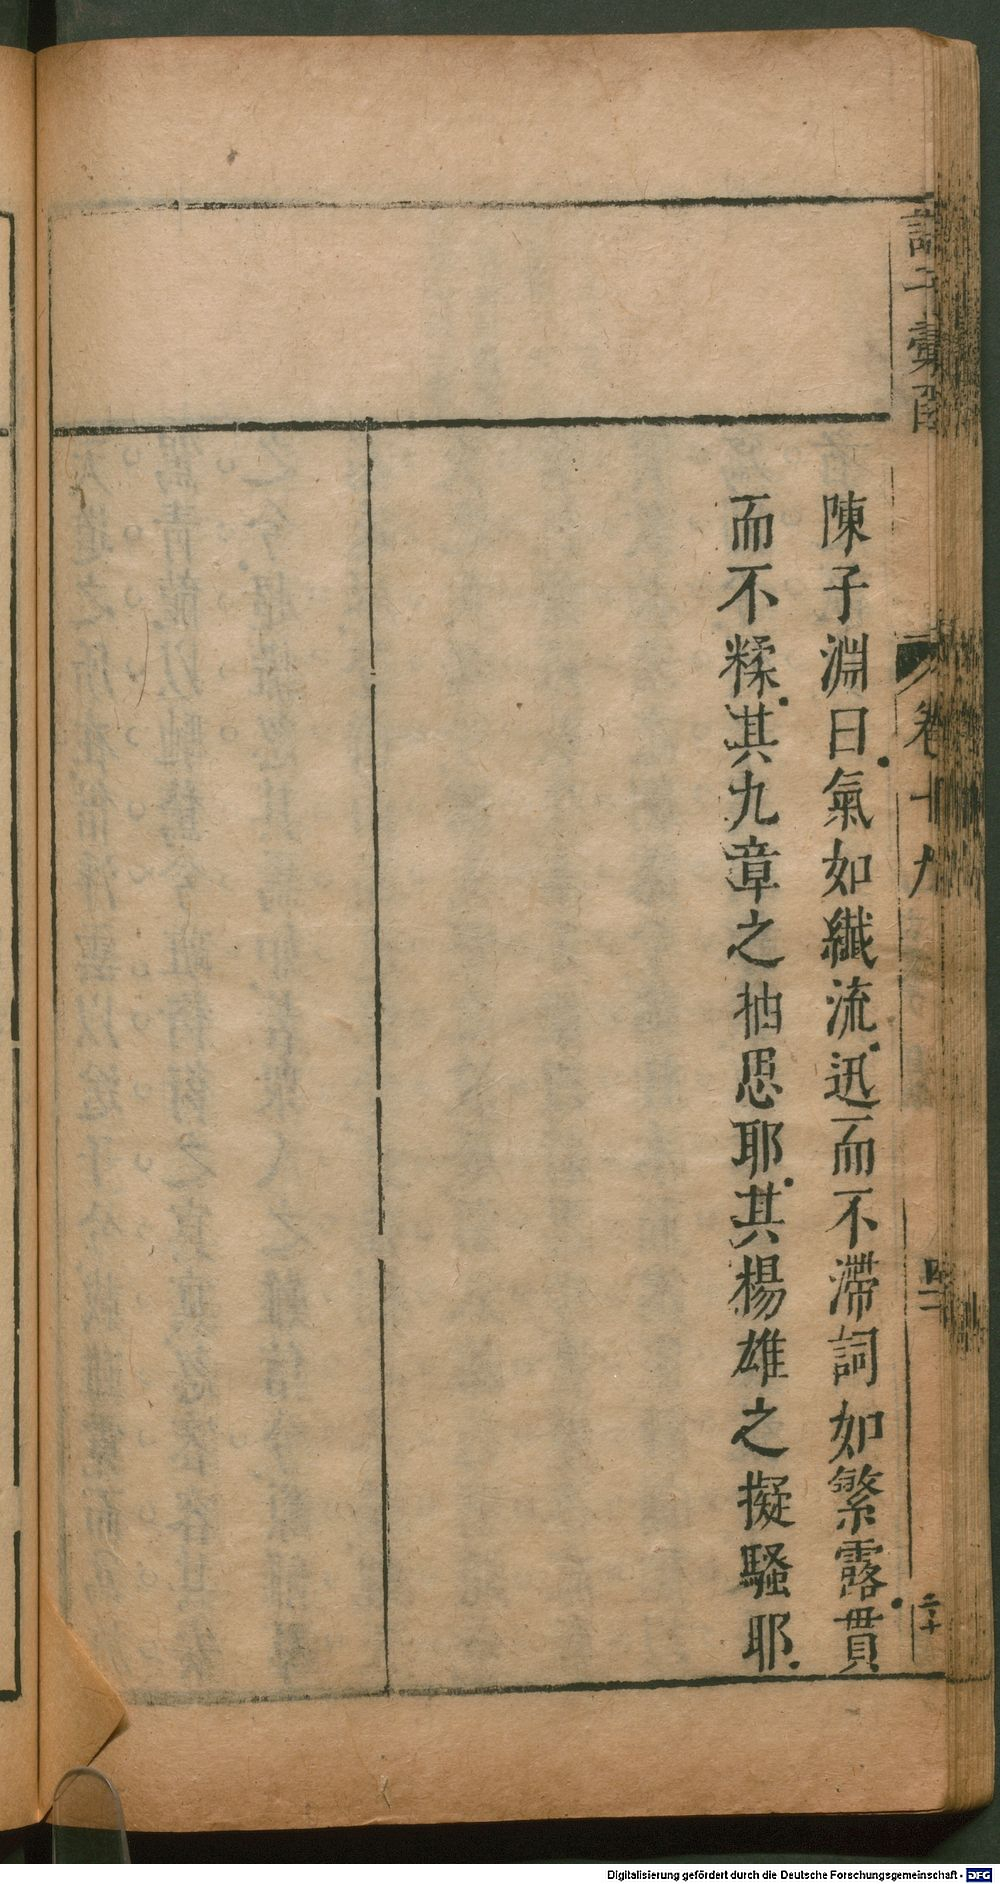 陳子淵曰氣如纎流迅而不滯詞如繁露貫
而不糅其九章之抽思耶其楊雄之擬騷耶
卷十九
二十
Digitalisierung gefördert durch die Deutsche Forschungsgemeinschaft - DFG